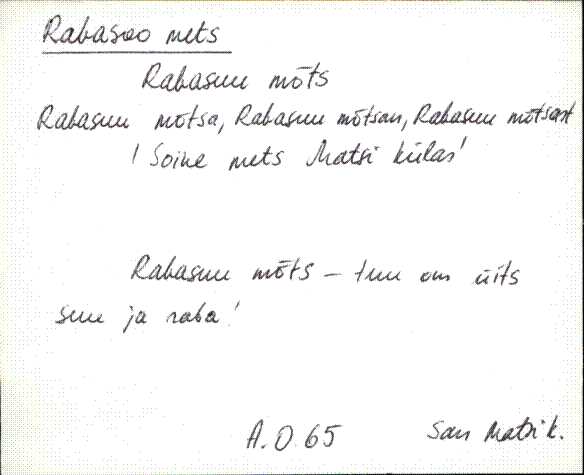 Rabasoo mets
Rabasuu mõts
Rabasuu mõtsa, Rabasuu mõtsan, Rabasuu mõtsast
'Soine mets Matsi külas'
Rabasuu mõts – tuu om üits
suu ja raba'
A.O 65 San Matsi k.